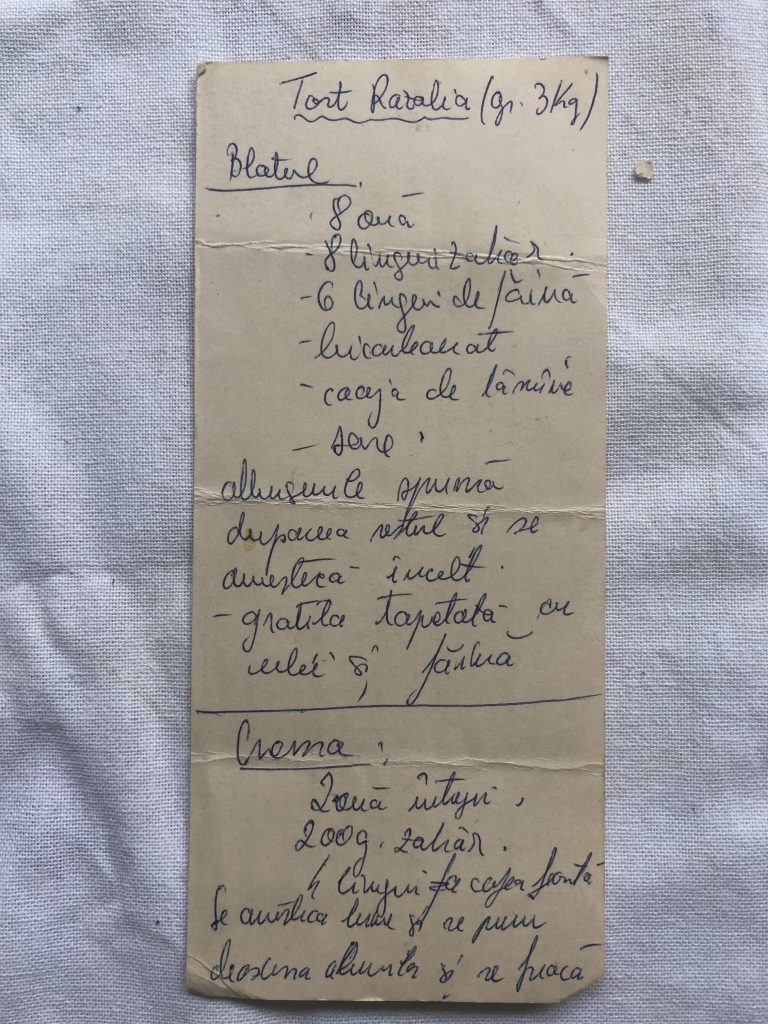 Tort Razalia (gr. 3Kg)
Blatul
8 ouă
- 8 linguri zahăr.
- 6 linguri de făină
- bicarbonat
- coaja de lămâie
- sare
albușurile spumă
dupaceea restul și se
amestică încet.
- gratila tapetată cu
ulei și făină
Crema:
2 ouă întregi,
200g. zahăr.
4 linguri cafea fiartă
Se amestica bine și se pun
deasupra aburilor și se freacă